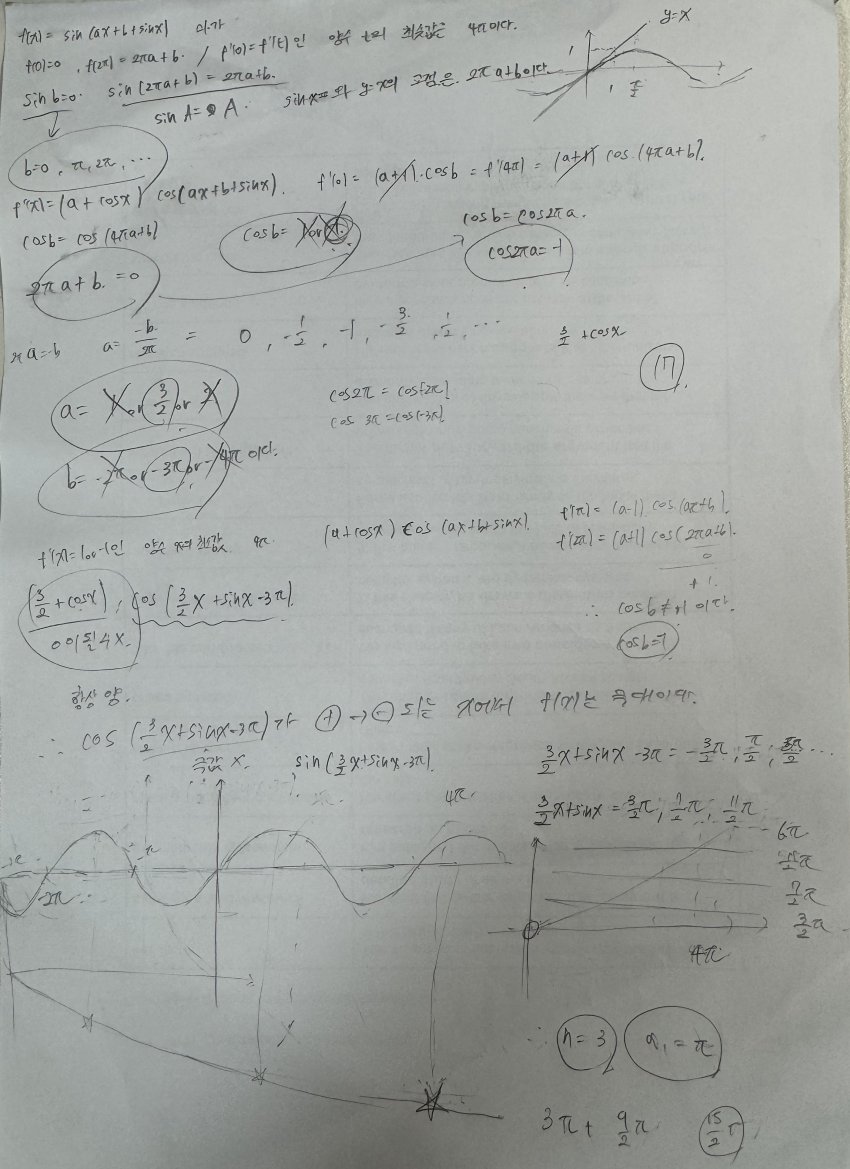 f(x) = sin(ax+b+sinx) 이가
f(0)=0, f(2π) = 2πa+b. / f'(0)=f'(t)인 양수 t의 최솟값은 4π이다.
sin b=0. sin(2πa+b) = 2πa+b.
sin A= A. sinx= 와 y=x의 교점은. 2πa+b이다.
y=x
1
1
π/2
b=0, π, 2π, ...
f'(x)=(a+cosx) cos(ax+b+sinx). f'(0) = (a+1)·cosb = f'(4π) = (a+1) cos(4πa+b).
cosb= cos(4πa+b)
cosb = cos2πa.
cos2πa=-1
2πa+b. =0
2πa=-b a= -b/2π = 0, -1/2, -1, -3/2, 1/2, ...
3/2 +cosx
17
a= 1 or 3/2 or 2
cos2π = cos(-2π)
cos 3π =cos(-3π)
b= -2π or -3π or -4π 이다.
(a+cosx) cos(ax+b+sinx).
f'(π) = (a-1) cos(aπ+b).
f'(2π) = (a+1) cos(2πa+b).
0
+1.
∴ cosb≠+1 이다.
cosb=-1
(3/2+cosx), cos(3/2x+sinx-3π).
0이 될 수 X.
항상 양.
∴ cos(3/2x+sinx-3π)가 + → - 되는 x에서 f(x)는 극대이다.
극값 X. sin(3/2x+sinx-3π).
3/2x+sinx-3π = -3/2π, π/2, 5π/2 ...
3/2x+sinx = 3/2π, 7/2π, 11/2π
4π.
-π
-2π
6π
11/2π
7/2π
3/2π
4π
∴ n=3 α₁=π
3π + 9/2π 15/2π